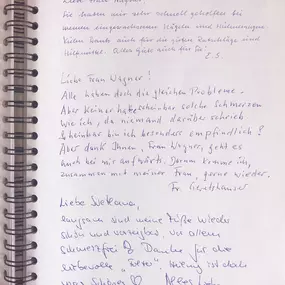 Sie haben mir sehr schnell geholfen bei
meinen eingewachsenen Nägeln und Hühneraugen.
Vielen Dank auch für die guten Ratschläge und
Hilfsmittel. Alles Gute auch für Sie!
Liebe Frau Wagner!
Alle haben doch die gleichen Probleme.
Aber keiner hatte scheinbar solche Schmerzen
wie ich, da niemand darüber schrieb
Scheinbar bin ich besonders empfindlich?
Aber dank Ihnen, Frau Wagner, geht es
auch bei mir aufwärts. Darum komme ich,
zusammen mit meiner Frau, gerne wieder.
Liebe Svetlana,
sind meine Füße wieder
schön und vorzeigbar, vor allem
schmerzfrei Danke für die
liebevolle
Alles